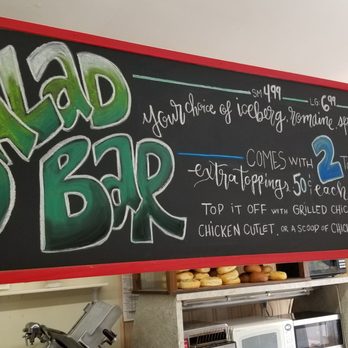 SALAD
BAR
SM 4.99 LG 6.99
your choice of iceberg, romaine,
COMES WITH 2
extra toppings .50¢ each
TOP IT OFF WITH GRILLED
CHICKEN CUTLET, OR A SCOOP OF